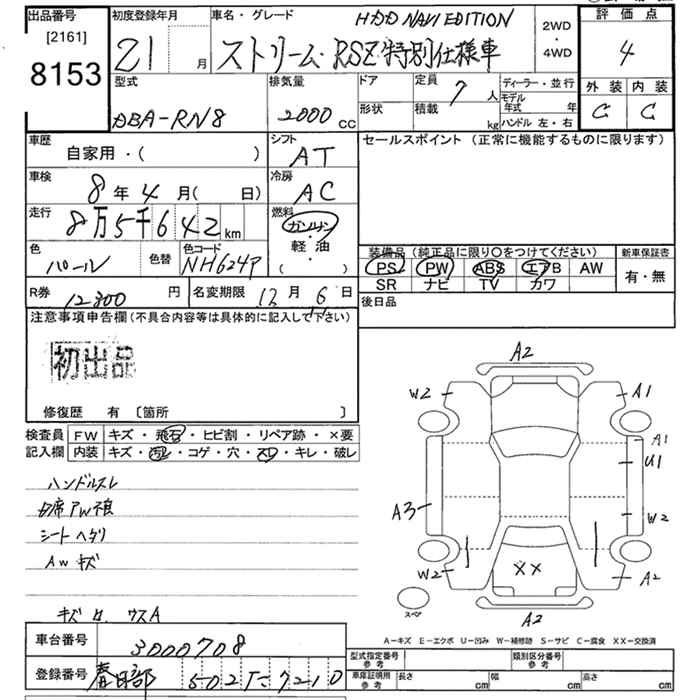 出品番号 初度登録年月 車名・グレード HDD NAVI EDITION 2WD・4WD 評価点
[2161]
8153 21 月 ストリーム・RSZ特別仕様車 4
型式 排気量 ドア 定員 7 人 ディーラー・並行 外装 内装
DBA-RN8 2000 cc 形状 積載 kg モデル年式 年 C C
ハンドル 左・右
車歴 シフト セールスポイント (正常に機能するものに限ります)
自家用・( ) AT
車検 冷房
8年4月( 日) AC
走行 燃料
8万5千642km ガソリン・軽油
( )
色 色替 色コード 装備品 (純正品に限り○をつけてください) 新車保証書
パール NH624P PS PW ABS エアB AW 有・無
SR ナビ TV カワ
R券 12800 円 名変期限 12月6日 後日品
注意事項申告欄(不具合内容等は具体的に記入して下さい)
初出品
修復歴 有 [箇所 ]
検査員 FW キズ・飛石・ヒビ割・リペア跡・×要
記入欄 内装 キズ・汚レ・コゲ・穴・スレ・キレ・破レ
ハンドルスレ
シートヘタリ
AWキズ
A2
W2 A1
A1
U1
A3 W2
W2 XX A2
スペア
A2
A-キズ E-エクボ U-凹み W-補修跡 S-サビ C-腐食 XX-交換済
車台番号 3000708
型式指定番号 参考 類別区分番号 参考
登録番号 春日部 502 7210
車庫証明用 参考 長さ cm 幅 cm 高さ cm